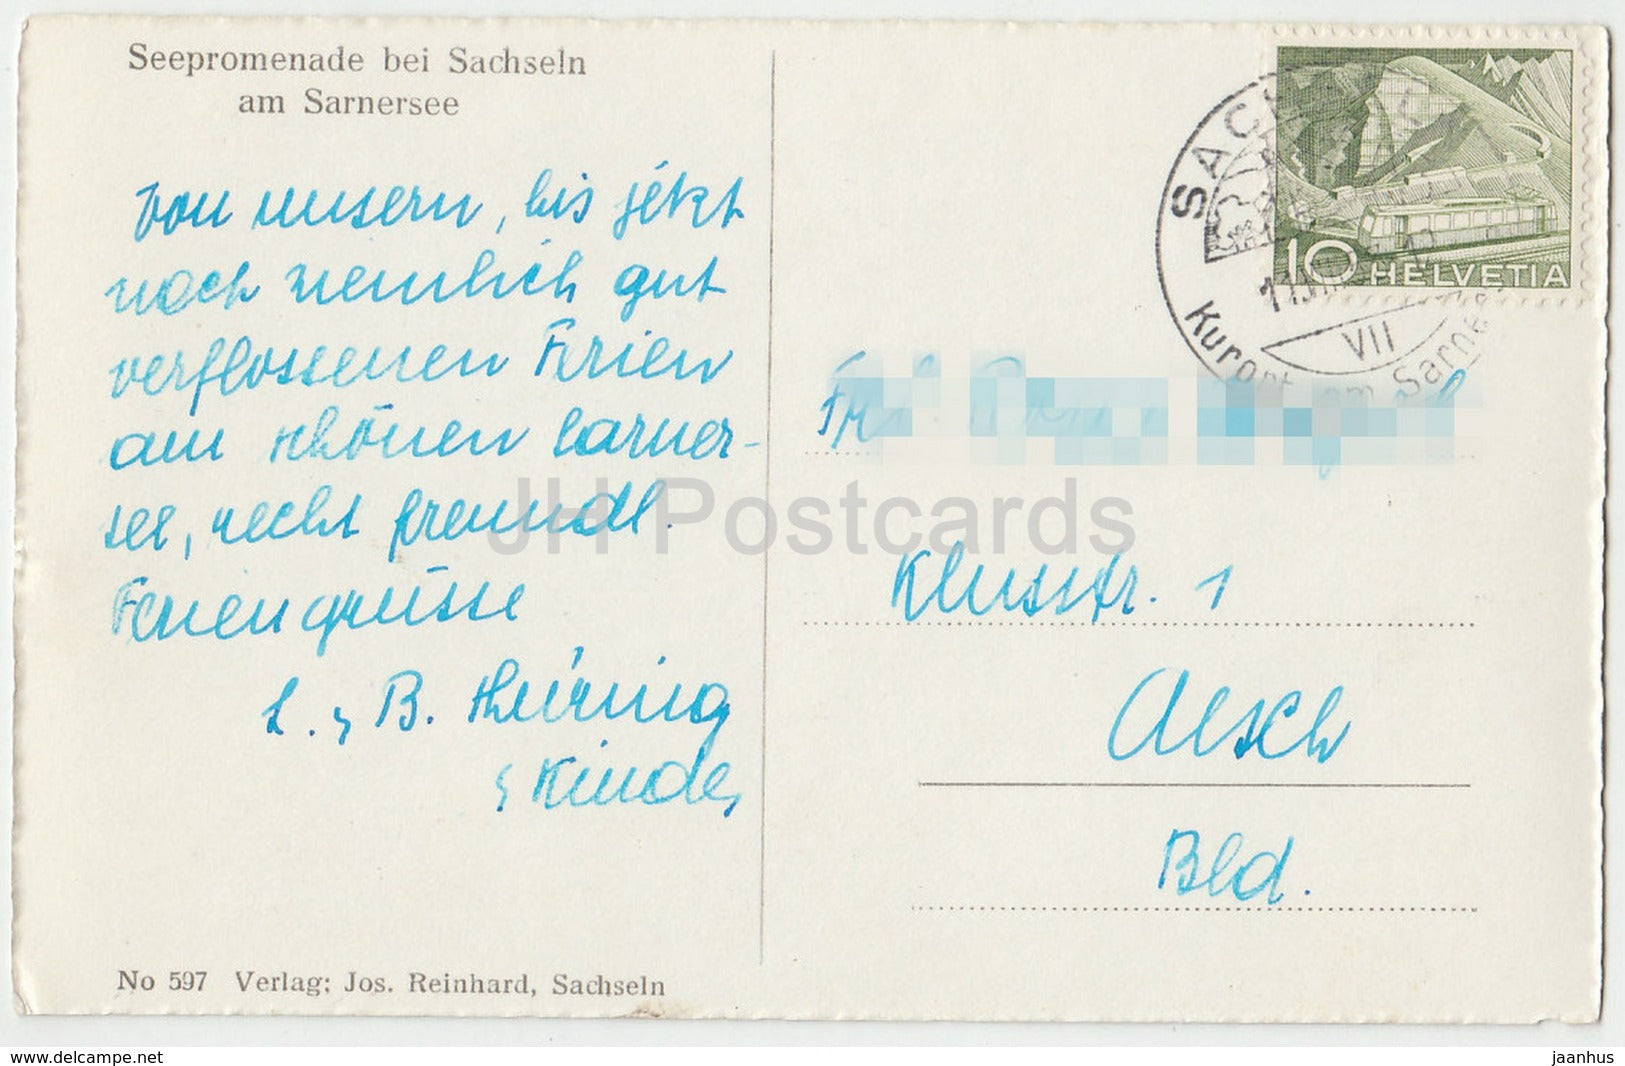 Seepromenade bei Sachseln
am Sarnersee
von unsern, bis jetzt
noch ziemlich gut
verflossenen Ferien
am schönen Sarner-
see, recht freundl.
Feriengrüsse
L. & B. Häring
& Kinder
No 597 Verlag: Jos. Reinhard, Sachseln
10 HELVETIA
SACH
Kurort am Sarne
VII
Frl.
Klusstr. 1
Aesch
Bld.
JH Postcards
www.delcampe.net
jaanhus